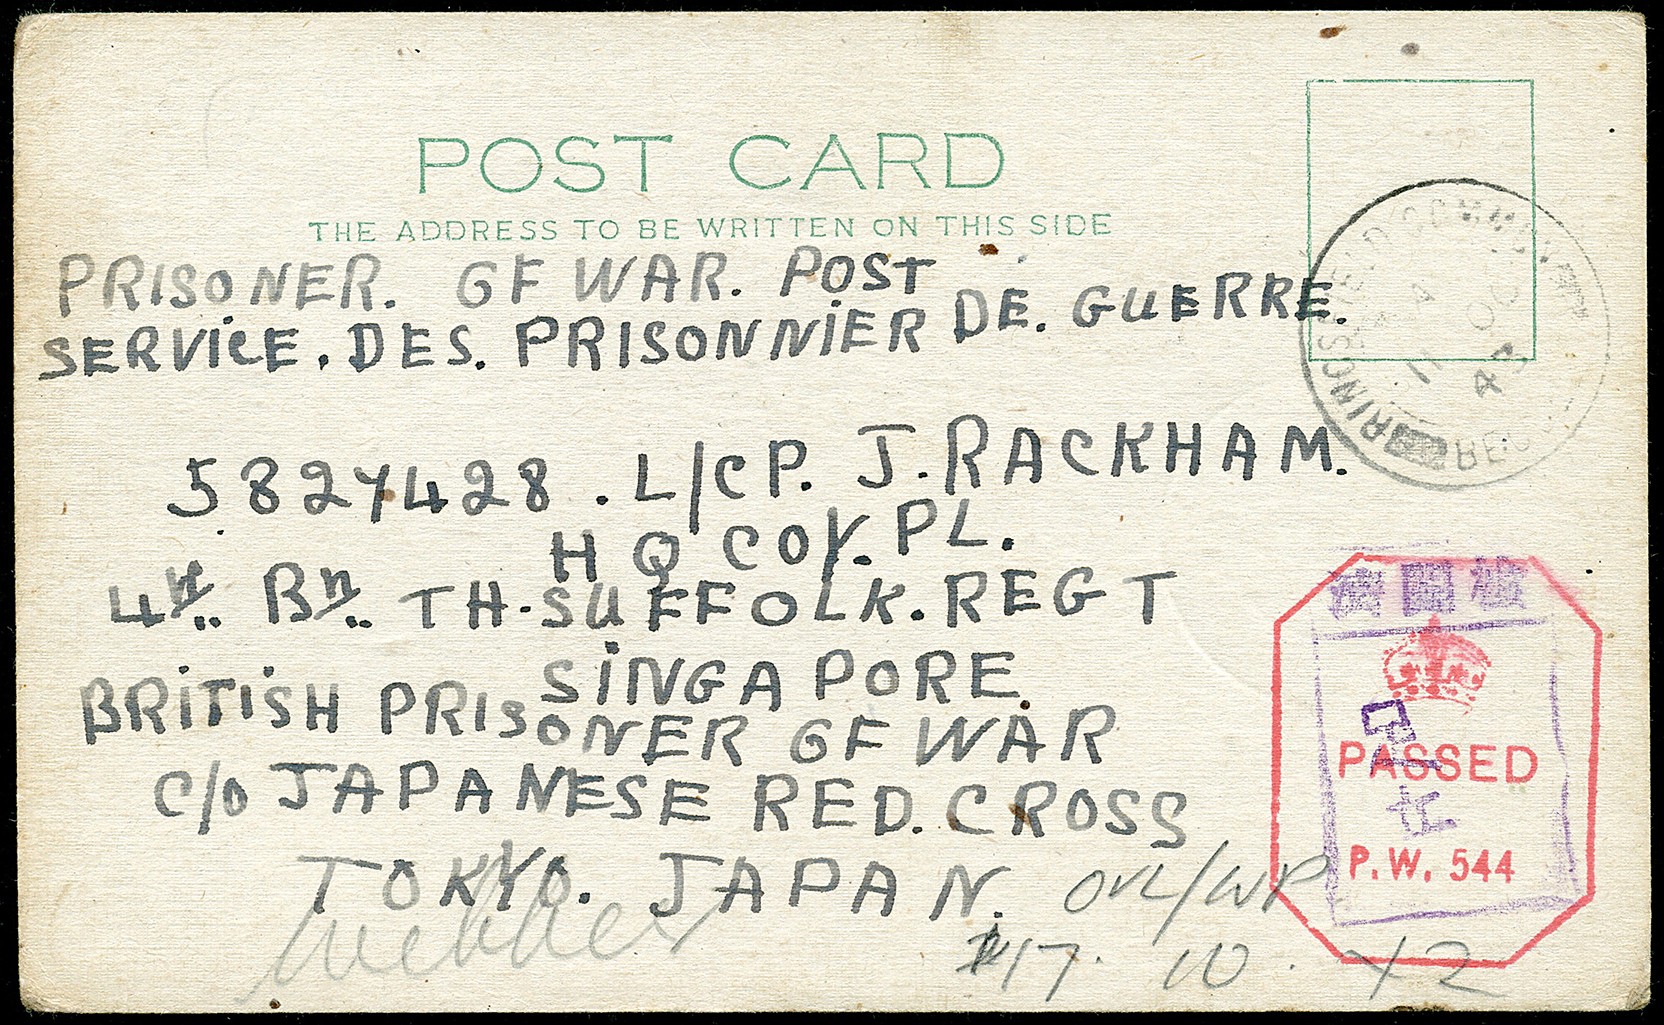 POST CARD
THE ADDRESS TO BE WRITTEN ON THIS SIDE
PRISONER. OF WAR. POST
SERVICE. DES. PRISONNIER DE. GUERRE.
5827428. L/CP. J. RACKHAM.
H Q COY. PL.
4 Bn. TH. SUFFOLK. REGT
SINGAPORE
BRITISH PRISONER OF WAR
C/O JAPANESE RED. CROSS
TOKYO. JAPAN.
PASSED
P.W. 544
17. 10. 42
11
43